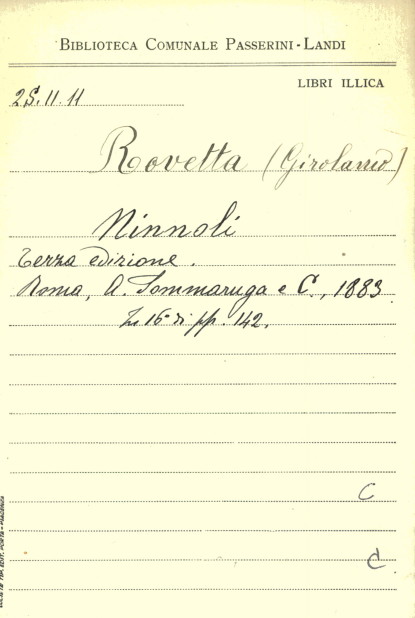 BIBLIOTECA COMUNALE PASSERINI-LANDI
LIBRI ILLICA
2S. 11. 11
Rovetta (Girolamo)
Ninnoli
Terza edizione.
Roma, A. Sommaruga e C., 1883.
In 16° di pp. 142.
C
C.